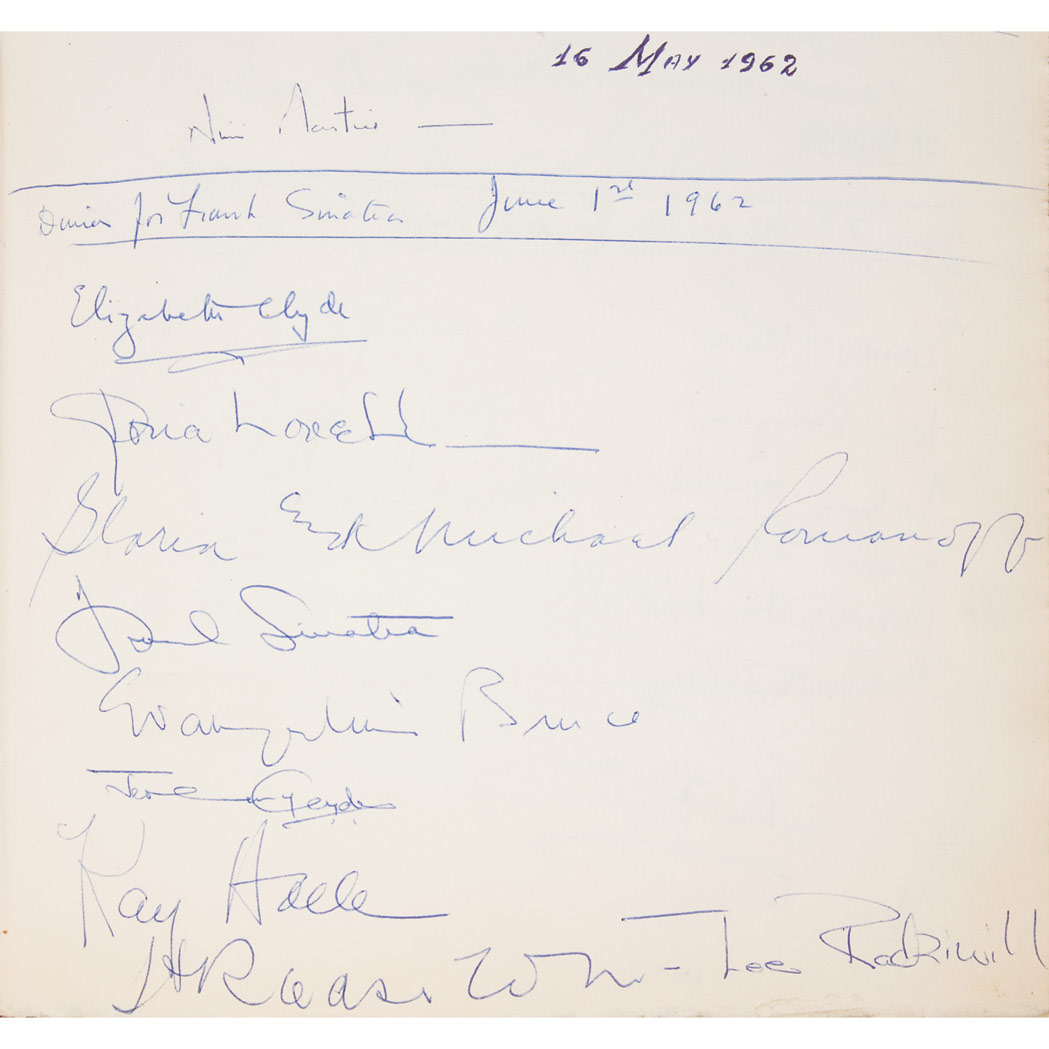 16 MAY 1962
Nini Martin —
Dinner for Frank Sinatra June 1st 1962
Elizabeth Clyde
Gloria And Michael Romanoff
Frank Sinatra
Evangeline Bruce
Kay Halle
Lee Radziwill